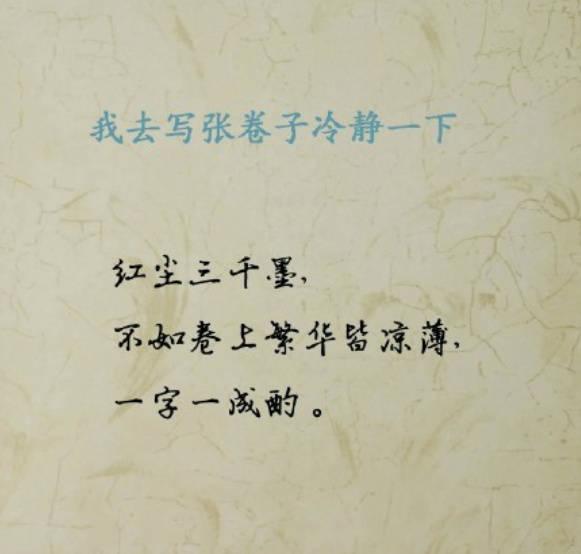 我去写张卷子冷静一下
红尘三千墨，
不如卷上繁华皆凉薄，
一字一成酌。